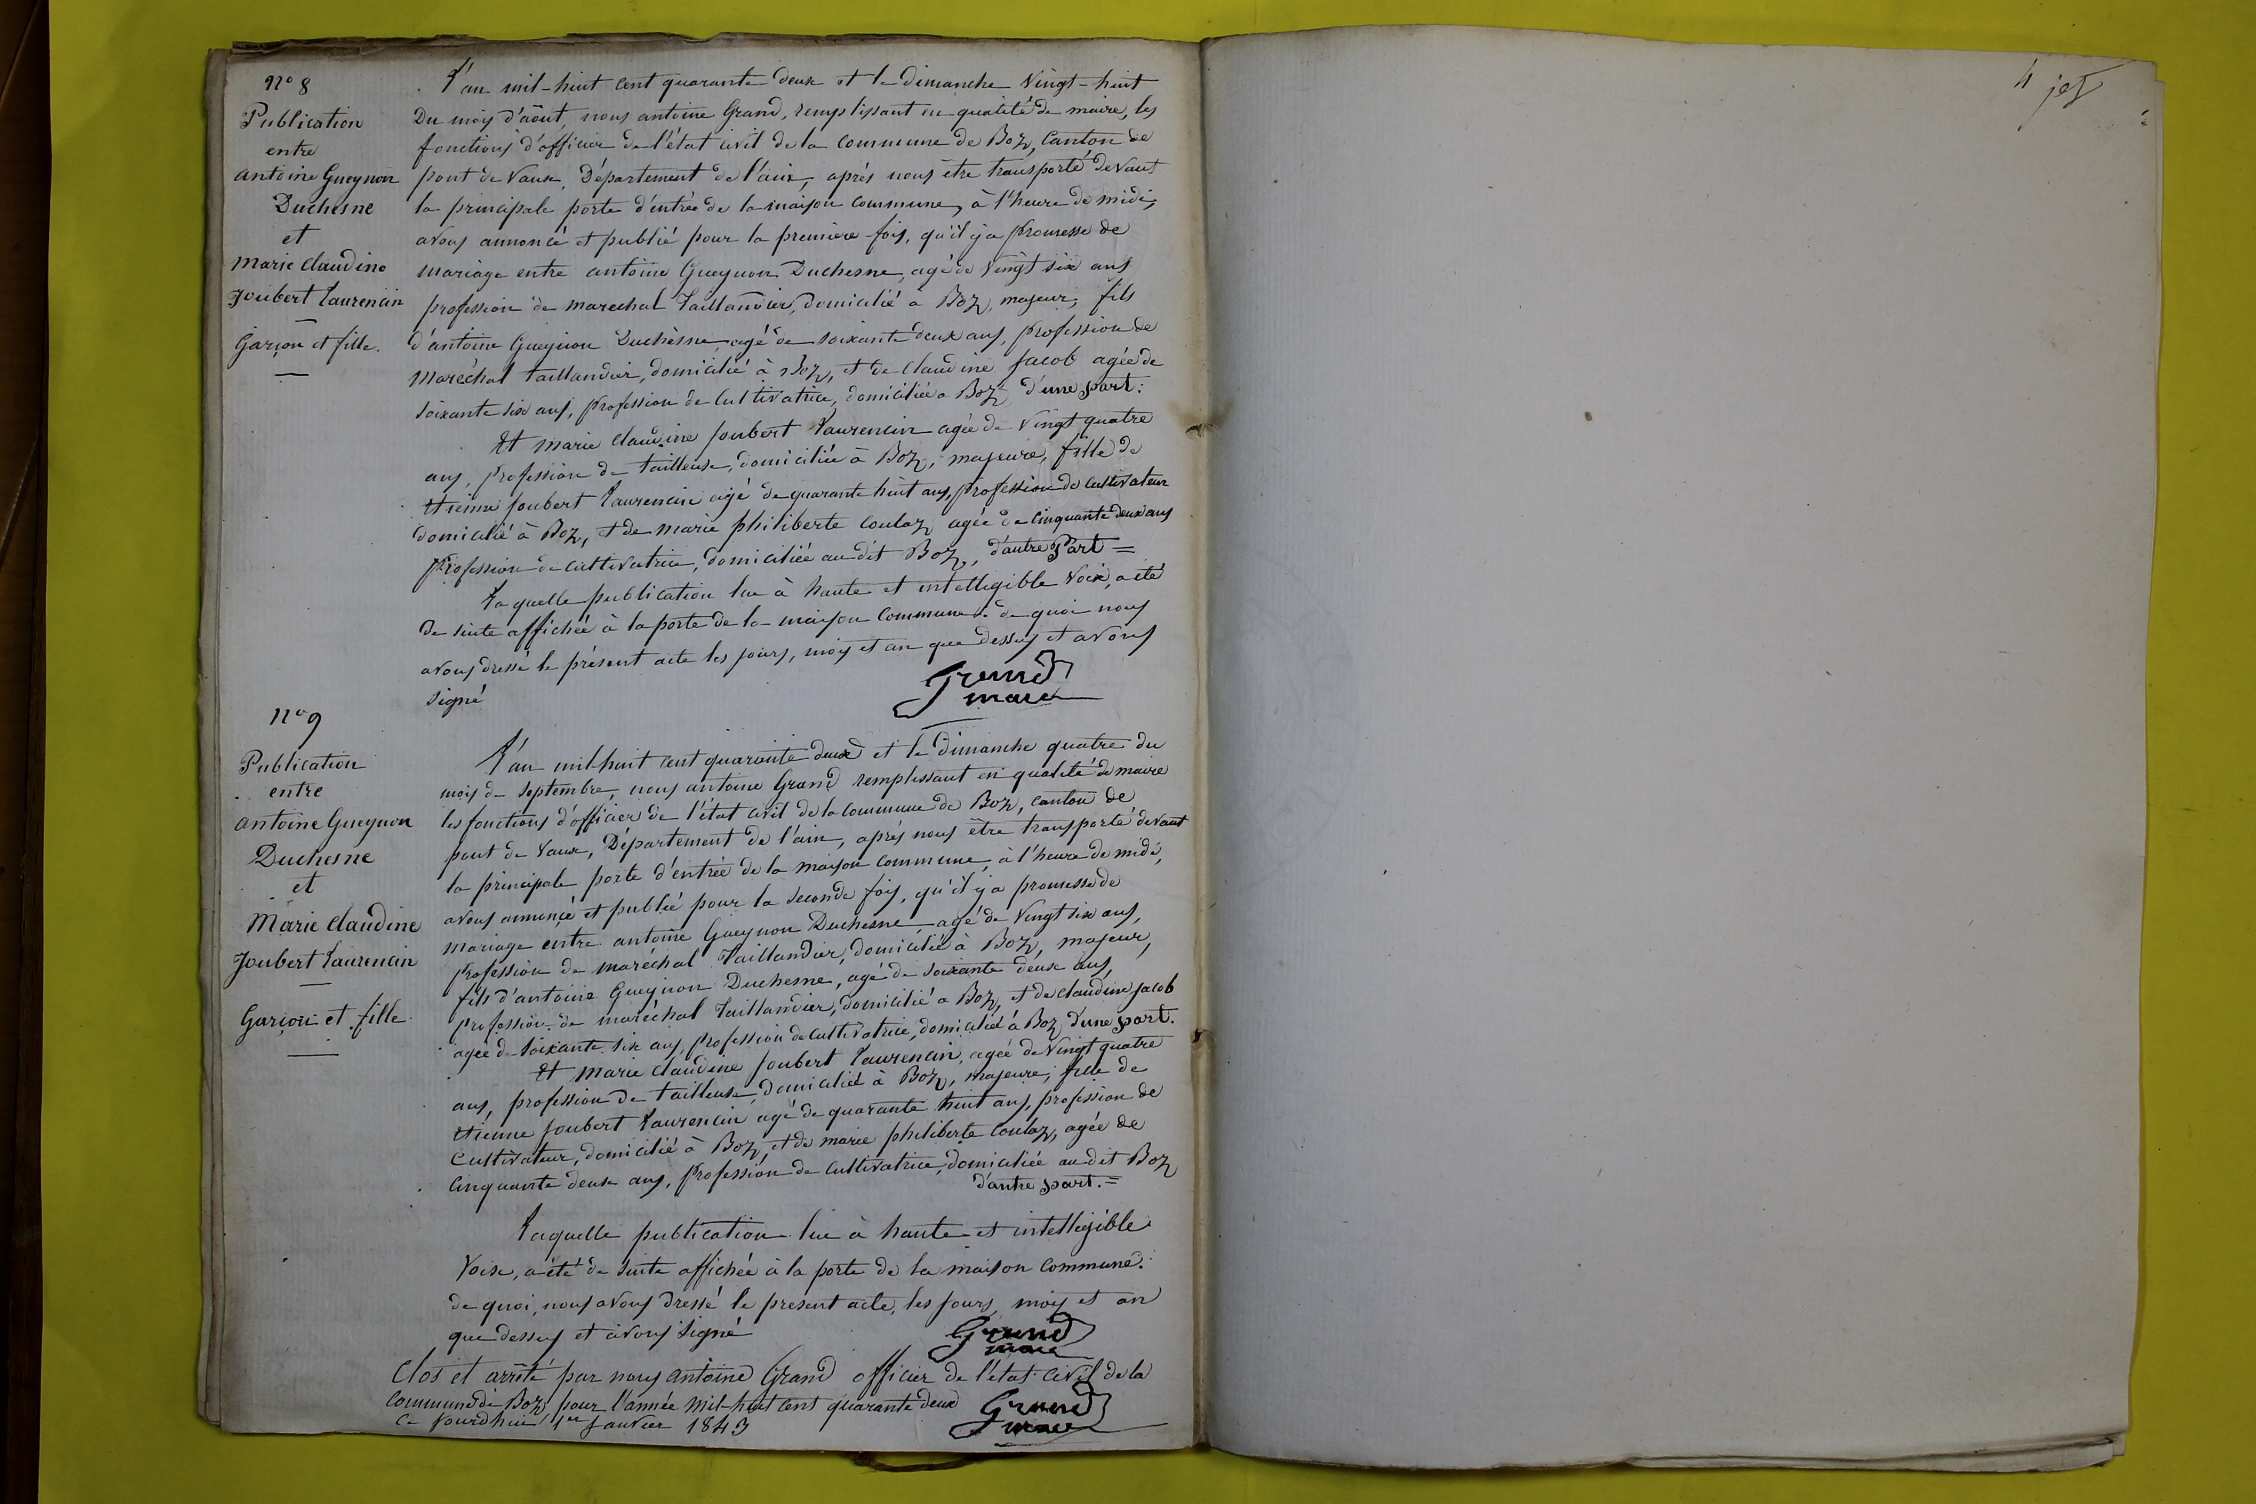 N° 8
Publication
entre
antoine Gueynon
Duchesne
et
Marie Claudine
Joubert Laurencin
Garçon et fille.
L'an mil-huit cent quarante deux et le dimanche vingt-huit
Du mois d'août, nous antoine Grand, remplissant en qualité de maire, les
fonctions d'officier de l'état civil de la commune de Boz, Canton de
pont de Vaux, Département de l'ain, après nous être transporté devant
la principale porte d'entrée de la maison commune, à l'heure de midi,
avons annoncé et publié pour la première fois, qu'il y a promesse de
mariage entre antoine Gueynon Duchesne, agé de vingt six ans
profession de marechal Taillandier, domicilié a Boz, majeur, fils
d'antoine Gueynon Duchèsne, agé de soixante deux ans, profession de
Maréchal taillandier, domicilié à Boz, et de Claudine Jacob agée de
soixante six ans, profession de Cultivatrice, domiciliée a Boz d'une part:
Et marie Claudine Joubert Laurencin agée de vingt quatre
ans, profession de tailleuse, domiciliée à Boz, majeure, fille de
Etienne Joubert Laurencin agé de quarante huit ans, profession de Cultivateur
domicilié à Boz, et de marie philiberte Coulaz agée de Cinquante deux ans
profession de Cultivatrice, domiciliée au dit Boz, d'autre Part =
Laquelle publication lue à haute et intelligible Voix, a été
de suite affichée à la porte de la maison Commune. de quoi nous
avons dressé le présent acte les jours, mois et an que dessus et avons
signé
Grand
maire
N° 9
Publication
entre
antoine Gueynon
Duchesne
et
Marie Claudine
Joubert Laurencin
Garçon et fille.
L'an mil-huit cent quarante deux et le Dimanche quatre du
mois de Septembre, nous antoine Grand remplissant en qualité de maire
les fonctions d'officier de l'état civil de la commune de Boz, canton de
pont de Vaux, Département de l'ain, après nous être transporté devant
la principale porte d'entrée de la maison commune, à l'heure de midi,
avons annoncé et publié pour la seconde fois, qu'il y a promesse de
mariage entre antoine Gueynon Duchesne, agé de vingt six ans,
profession de maréchal Taillandier, domicilié à Boz, majeur,
fils d'antoine Gueynon Duchesne, agé de soixante deux ans,
profession de maréchal Taillandier, domicilié a Boz, et de claudine Jacob
agée de soixante six ans, profession de Cultivatrice, domiciliée à Boz, d'une part.
Et marie Claudine Joubert Laurencin, agée de vingt quatre
ans, profession de tailleuse, domiciliée à Boz, majeure, fille de
Etienne Joubert Laurencin agé de quarante huit ans, profession de
Cultivateur, domicilié à Boz, et de marie philiberte Coulaz, agée de
Cinquante deux ans, profession de Cultivatrice, domiciliée au dit Boz
d'autre part. =
Laquelle publication lue à haute et intelligible
Voix, a été de suite affichée à la porte de la maison Commune.
de quoi, nous avons dressé le present acte, les jours, mois et an
que dessus et avons signé
Grand
maire
Clos et arrêté par nous Antoine Grand officier de l'état civil de la
Commune de Boz, pour l'année mil-huit cent quarante deux
Ce jourdhui 1er Janvier 1843
Grand
maire
4